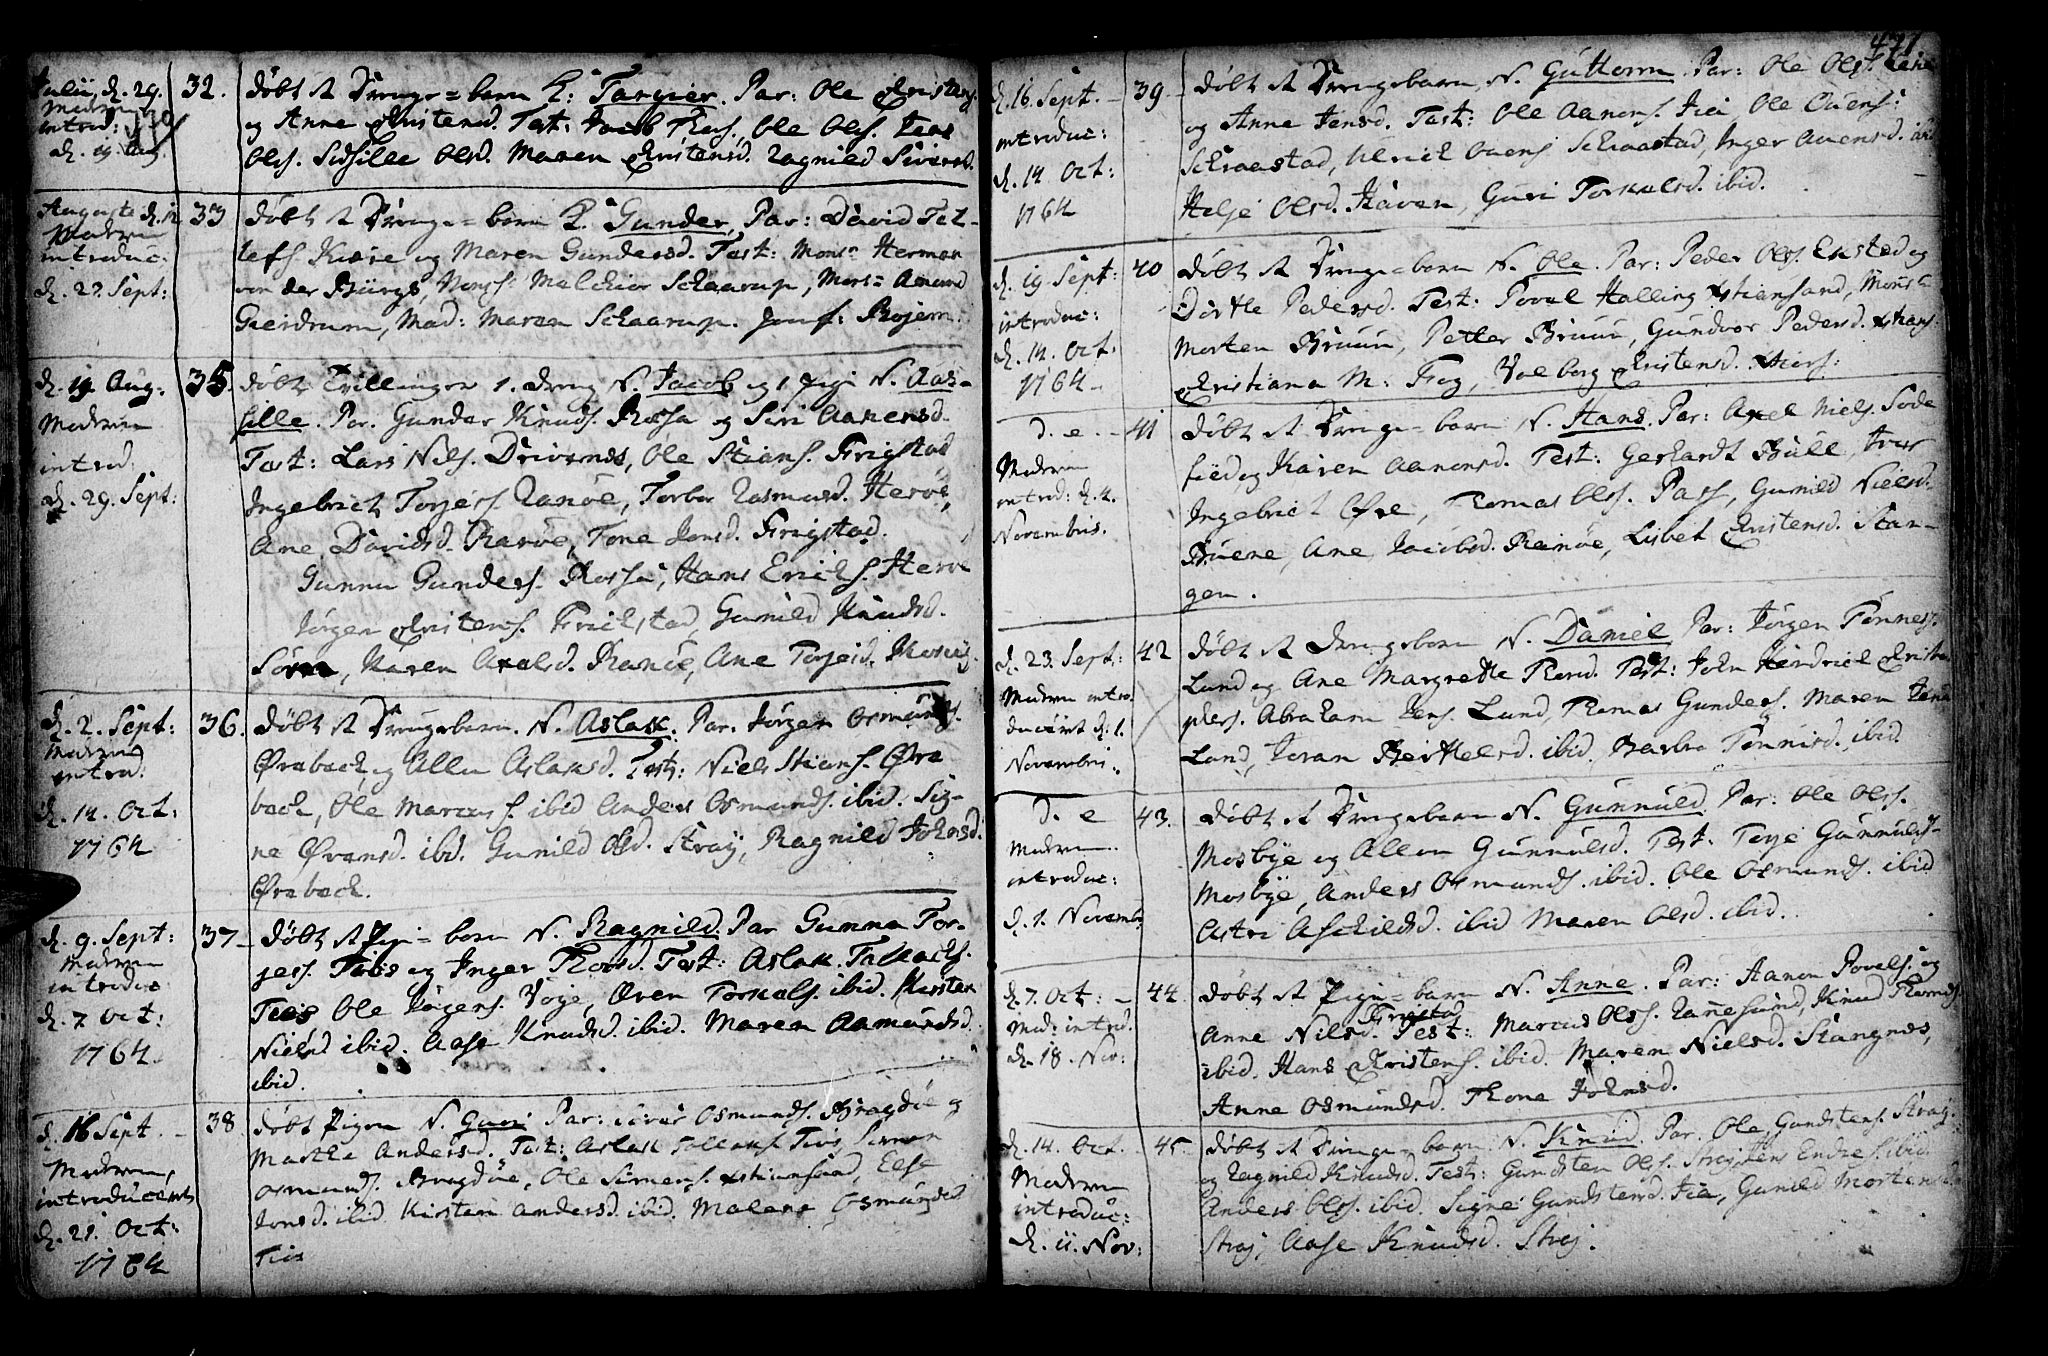 Julii, d. 29.
Madren
introd:
d. 19. Aug.
32.
døbt it Drenge-barn N: Targier. Par: Ole Christens.
og Anne Christensd. Test: Jacob Thors. Ole Ols. Jens
Ols. Sidsille Olsd. Maren Christensd. Ragnild Siversd.
Auguste d. 12
Madren
introduc:
d. 23. Sept:
33
døbt it Drenge-barn N. Gunder, Par: David Tel-
lefs Kiære og Maren Gundersd. Test: Monsr Herman
von der Bürgs, Monsr: Melchior Schaarup, Mons: Amund
Geirdrum, Mad: Maren Schaarup. Jomf: Bojem:
d. 19 Aug:
Madren
introd:
d. 29. Sept:
35.
døbt Tvillinger 1. dreng N. Jacob og 1 Pige N. Aas-
sille. Par. Gunder Knuds. Rossa og Siri Aanensd.
Test: Lars Nils. Drivenes, Ole Stians. Frigstad
Ingebrict Torjers. Ranøe, Torbor Rasmusd. Herøe,
Ane Davidsd. Ranøe, Tone Jonsd. Frigstad.
Gunnu Gunders. Rossa, Hans Erichs. Herøe
Jörgen Christens. Frichstad, Gunild Knudsd.
Søren, Karen Axelsd. Ranöe, Ane Torjeisd.
d. 2. Sept:
Madren
introd.
d. 14. Oct:
1764
36.
døbt it Drengebarn. N. Aslak. Par. Jörgen Osmunds.
Ørebech og Allen Aslaksd. Test: Niels Stians. Øre
bech, Ole Marcus s. ibid Anders Osmunds. ibid. Sig-
ne Ørensd. ibd. Gunild Olsd. Straÿ, Ragnild Johnsd.
Ørebech.
d. 9. Sept:
Madren
introduc
d. 7. Oct:
1764.
37-
døbt it Pige-barn N. Ragnild. Par Gunna Tor-
jers. Tiös og Inger Thorsd. Test: Aslak. Tallachs.
Tiös Ole Jörgens. Voje, Øven Torkels. ibid. Kirsten
Nielsd ibid. Aase Knudsd. ibid. Maren Aamundsd.
ibid.
d. 16 Sept. -
Madren,
introduceret
d. 21. Oct:
1764
38
døbt Pigen N. Guri Par: Siver Osmunds. Bragdöe og
Marthe Andersd. Test: Aslak Tallaks. Tiös Simon
Osmunds. Bragdöe, Ole Simens. Xstiansand, Else
Jonsd. ibid Kirsten Andersd. ibid. Malene Osmundsd
Tiös
471
d. 16. Sept. -
introduc:
d. 14 Oct:
1764
39 -
døbt it Drengebarn N. Guttorm. Par: Ole Ols.
og Anne Jensd. Test: Ole Aanens. Ole Ouens:
Schraastad, Ulrich Ouens Schraastad, Inger Auensd. ibid
Helje Olsd. Haven, Guri Torkelsd. ibid.
d. 19 Sept:
introduc:
d. 14. Oct.
1764.
40
døbt it Drenge-barn N. Ole. Par: Peder Ols. Ekested og
Dorthe Pedersd. Test: Povel Halling Xstiansand, Monsr:
Morten Bruun, Petter Bruun, Gundvor Pedersd. Xstians:
Christiana M: Frog, Valborg Christensd. Xtians:
d. e. -
Madren
introd: d. 4.
Novembris.
41
døbt it Drenge-barn N. Hans. Par: Axel Niels. Sode
fied, og Karen Aanensd. Test: Gerhardt Bülle, Iver
Ingebrict Øre, Thomas Ols. Pass, Gunild Nielsd.
Buene, Ane Jacobsd. Ranøe, Lisbet Christensd. Stan-
gen.
d. 23. Sept:
Madren intro-
duceret d. 1.
Novembris.
42
døbt it Drengebarn N. Daniel Par: Jörgen Tønnes.
Lund og Ane Margrethe Thorsd. Test: John Hendrich Christo
phers. Abraham Jens. Lund, Thomas Gunders. Maren
Lund, Joran Berthelsd. ibid. Barbra Tønnisd. ibid.
d. e
Madren.
introduc:
d. 1. Novembr
43.
døbt it Drengebarn N. Gunnuld Par: Ole Ols.
Mosbÿe og Allen Gunnulsd. Test: Terje Gunnuls.
Mosbÿe, Anders Osmunds. ibid. Ole Osmunds. ibid
Astri Aschildsd. ibid Maren Olsd. ibid.
d. 7. Oct: -
Mad: introd.
d. 18. Nov:
44.
døbt it Pige-barn N. Anne. Par: Aanon Povels. og
Anne Nilsd. Frigsta Test: Marcus Ols. Ranesund, Knud Rasmus.
ibid. Hans Christens. ibid. Maren Nielsd. Stangnes,
Anne Osmundsd. Thone Johnsd.
d. 14. Oct.
Madren
introduc:
d. 11. Nov:
45.
døbt it Drenge-barn N. Knud. Par. Ole Gundstens. Straÿ.
og Ragnild Knudsd. Test: Gundsten Ols. Straÿ, Jens Endres. ibid.
Anders Ols. ibid. Signe Gundstensd. Gunild Mortens
Straj, Aase Knudsd. Straj.